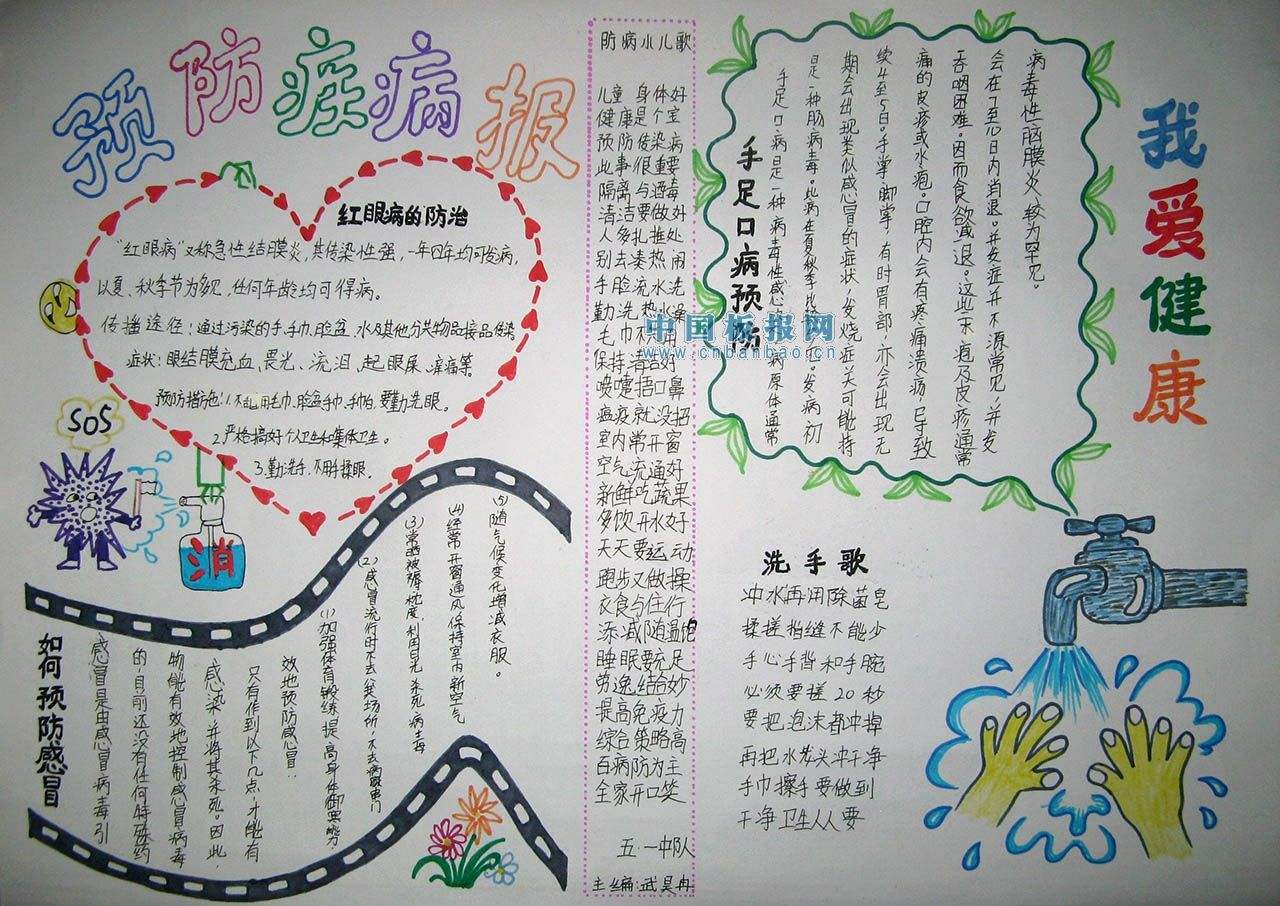 预防疾病报
红眼病的防治
“红眼病”又称急性结膜炎，其传染性强，一年四年均可发病，
以夏、秋季节为多见，任何年龄均可得病。
传播途径：通过污染的手、手巾、脸盆、水及其他公共物品接品传染
症状：眼结膜充血、畏光、流泪、起眼屎、痒痛等。
预防措施：1.不乱用毛巾、脸盆手巾、手帕，要勤洗眼。
2.严格搞好个人卫生和集体卫生。
3.勤洗手，不用手揉眼。
SOS
消
如何预防感冒
感冒是由感冒病毒引
的，目前还没有任何特殊药
物能有效地控制感冒病毒
感染，并将其杀死。因此，
只有作到以下几点，才能有
效地预防感冒：
(1)加强体育锻练，提高身体御寒能力
(2)感冒流行时不去公共场所，不去病家串门
(3)常晒被褥枕皮，利用日光杀死病毒
(4)经常开窗通风保持室内新空气
(5)随气候变化增减衣服。
防病小儿歌
儿童身体好
健康是个宝
预防传染病
此事很重要
隔离与酒毒
清洁要做好
人多扎推处
别去凑热闹
手脸流水洗
勤洗热水澡
毛巾不用
保持清台好
喷嚏捂口鼻
瘟疫就没招
室内常开窗
空气流通好
新鲜吃蔬果
多饮开水好
天天要运动
跑步又做操
衣食与住行
添减随温
睡眠要充足
劳逸结合妙
提高免疫力
综合策略高
百病防为主
全家开口笑
五·一中队
主编：武昊冉
手足口病预防
手足口病是一种病毒性感 病原体通常
是一种肠病毒。此病在夏秋季比较 见。发病初
期会出现类似感冒的症状，发烧症关可能持
续4至5日。手掌、脚掌、有时胃部，亦会出现无
痛的皮疹或水疱。口腔内会有疼痛溃疡，导致
吞咽困难。因而食欲减退。这些水疱及皮疹通常
会在7至10日内消退。并发症并不源常见，并发
病毒性脑膜炎较为罕见。
我爱健康
洗手歌
冲水再用除菌皂
揉搓指缝不能少
手心手背和手腕
必须要搓20秒
要把泡沫都冲掉
再把水龙头冲干净
手巾擦手要做到
干净卫生人人要
中国板报网
www.cnbanbao.cn